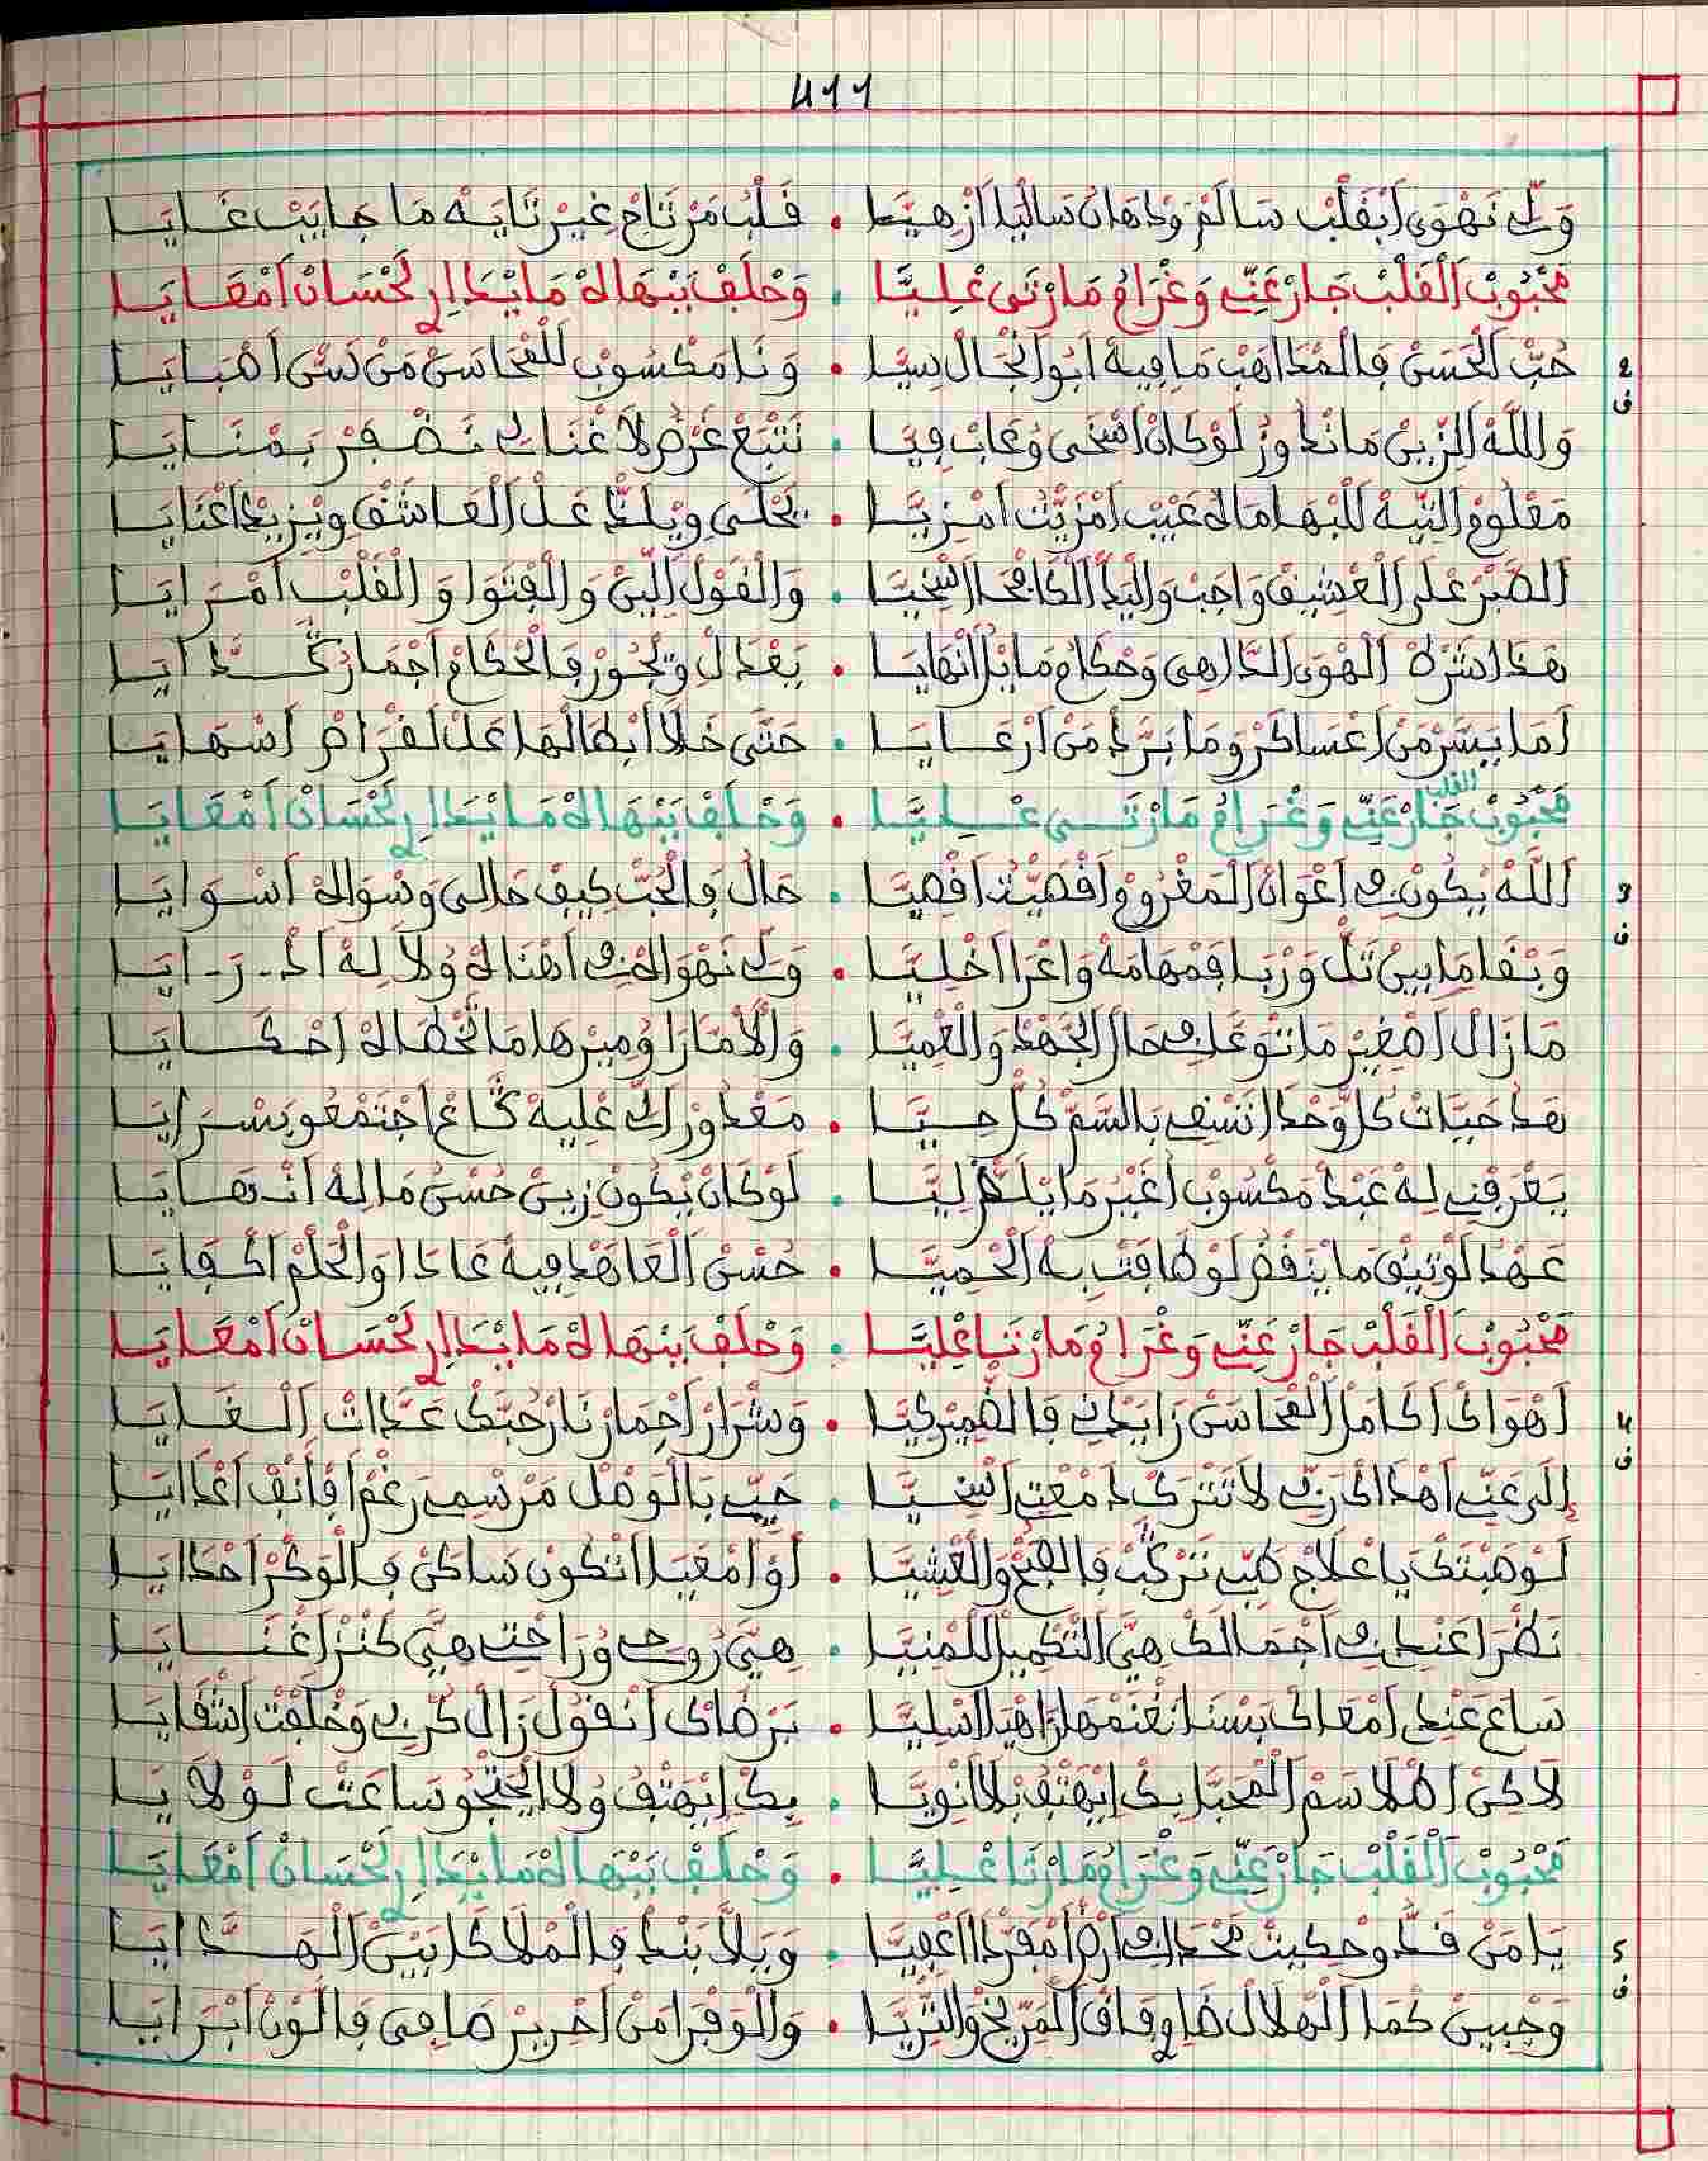 411
وَلِّي نَهْوَى ابْقَلْبْ سَالَمْ وَدْهَانْ سَالْبَا ازْهِيَّا . قَلْبُ مَرْتَاحْ غِيرْ تَايَهْ مَا جَايَبْ غَايَا
مَحْبُوبْ الْقَلْبْ جَارْ عَنِّي وَغْرَامُ مَا رْتَى عْلِيَّا . وَحْلَفْ بَبْهَاهْ مَا يْدَا لِي لَحْسَانْ امْعَايَا
2 ف
حُبّ الْحَسَنْ فَالْمْدَاهَبْ مَا فِيهْ ابُو الْجَالْ سِيَّا . وَنَا مَكْسُوبْ لَلْمْحَاسَنْ مَنْ نَشْئ اهْبَايَا
وَاللَّهْ الزِّينْ مَا نْدَاوَزْ لَوْ كَانْ اسْخَى وُعَابْ فِيَّا . نَتْبَعْ غَرْضُ لَا غْنَا لِي نَضْفَرْ بَمْنَايَا
مَعْلُومْ التِّيهْ لَلْبْهَا مَالُه عَيْبْ امْزِيّْتْ امْزِيَّا . يَحْلَى وِيْلَذّْ عَلْ الْعَاشَقْ وِيْزِيدْ اعْنَايَا
الصّْبَرْ عْلَى الْعْشِيقْ وَاجَبْ وَالْيَدّْ الْكَامْحَا السّْخِيَّا . وَالْقَوْلْ اللِّينْ وَالْفْتَوَا وَالْقَلْبْ امْرَايَا
هَذَا شَرْعْ الْهْوَى الدَّاهِي وَحْكَامُ مَا بْلَا نْهَايَا . يَعْدَلْ وِيْجُورْ فَالْحْكَامْ اجْمَارُ كَدَّايَا
امَا يَسَّرْ مَنْ اعْسَاكَرْ وَمَا بَرَّدْ مَنْ ارْعَايَا . حَتَّى خَلَّا ابْطَالْهَا عَلْ لَفْرَاضْ اسْهَايَا
مَحْبُوبْ القلب جَارْ عَنِّي وَغْرَامُ مَا رْتَى عْلِيَّا . وَحْلَفْ بَبْهَاهْ مَا يْدَا لِي لَحْسَانْ امْعَايَا
3 ف
اللَّهْ يْكُونْ فِي اعْوَانْ الْمَغْرُومْ اقْصِيّْتُ اقْصِيَّا . حَالُ فَالْحُبّْ كِيفْ حَالِي وَسْوَالُه اسْوَايَا
وَبْقَا مَا بِينْ تَلّْ وَرْبَا فَمْهَامَهْ وَاعْرَا اخْلِيَّا . وَلِّي نَهْوَاهْ فِي اهْنَاهْ وُلَا لِهْ ادْرَايَا
مَا زَالْ اصْغِيرْ مَا تْوَعَّى لِي حَالْ الْجَهْدْ وَالْعْمِيَّا . وَالْأمَارَا وُمِيرْهَا مَا تَّخْطَاهْ احْكَايَا
هَدْ حَيَّاتْ كُلّْ وَحْدَا تَسْقِي بَالسَّمّْ كُلّْ حِيَّا . مَعْدُورْ الِّي عْلِيهْ كَاعْ اجْتَمْعُو بَسْرَايَا
يَعْرَفْنِي لِهْ عَبْدْ مَكْسُوبْ اغَيْرْ مَا يْلَدّْ لِيَّا . لَوْ كَانْ يْكُونْ زِينْ حُسْنُ مَا لِهْ انْهَايَا
عَهْدْ لَوْتِيقْ مَا يَنْقَضْ لَوْ طَاقَتْ بِهْ الْحْمِيَّا . حُسْنْ الْعَاهْدْ فِيهْ عَادَا وَالْحَلْمْ اكْفَايَا
مَحْبُوبْ الْقَلْبْ جَارْ عَنِّي وَغْرَامُ مَا رْتَا عْلِيَّا . وَحْلَفْ بَبْهَاهْ مَا يْدَا لِي لَحْسَانْ امْعَايَا
4 ف
اهْوَاكْ اكَامَلْ الْمْحَاسَنْ زَايَدْنِي فَالضّْمِيرْ كِيَّا . وَشْرَارْ اجْمَارْ نَارْ حُبَّكْ عَدَّاتْ الْغَايَا
الَى عَنِّي اهْدَاكْ رَبِّي لَا تَتْرَكْ دَمْعْتِي اسْخِيَّا . حَيِّي بَالْوَصْلْ مَرْسْمِي رَغْمْ افَانَفْ اعْدَايَا
لَوْ هَبْتَكْ يَا عْلَاجْ طَبِّي نَرْكَبْ فَالصّْبَحْ وَالْعْشِيَّا . لَوْ امْعَيَا اتْكُونْ سَاكَنْ فَالْوَكْرْ احْدَايَا
نَضْرَا عَنْدِي فِي اجْمَالَكْ هِيَّ التَّكْمِيلْ لَلْمْنِيَّا . هِيَّ رُوحِي وُرَاحْتِي هِيَّ كَنْزْ اغْنَايَا
سَاعَ عَنْدِي امْعَاكْ بَسْنَا نَغْنَمْهَا زَاهْيَا اسْلِيَّا . بَرْضَاكْ انْقُولْ زَالْ كَرْبِي وَخْلَفْتْ اشْقَايَا
لَاكِنْ اهْلَا سَمْ الْمْحَبَّا بِكْ ايْهَتَفْ بْلَا انْوِيَّا . بِكْ ايْهَتَفْ وُلَا الْحَتْجُو سَاعَتْ لَوْلَايَا
مَحْبُوبْ الْقَلْبْ جَارْ عَنِّي وَغْرَامُ مَا رْتَا عْلِيَّا . وَحْلَفْ بَبْهَاهْ مَا يْدَا لِي لَحْسَانْ امْعَايَا
5 ف
يَا مَنْ قَدُّو حْكِيتْ مَحْدَا فِي ارْضْ امْفَرْدَا اعْفِيَّا . وَيَلَّا بَنْدْ فَالْمْلَاكَا بَيْنْ الْهَدَّايَا
وَجْبِينْ كْمَا الْهْلَالْ ضَاوِي فَاقْ الْمَرِّيخْ وَالثّْرِيَّا . وَالْوَفْرَا مَنْ احْرِيرْ صَافِي فَالَّوْنْ ابْرَايَا